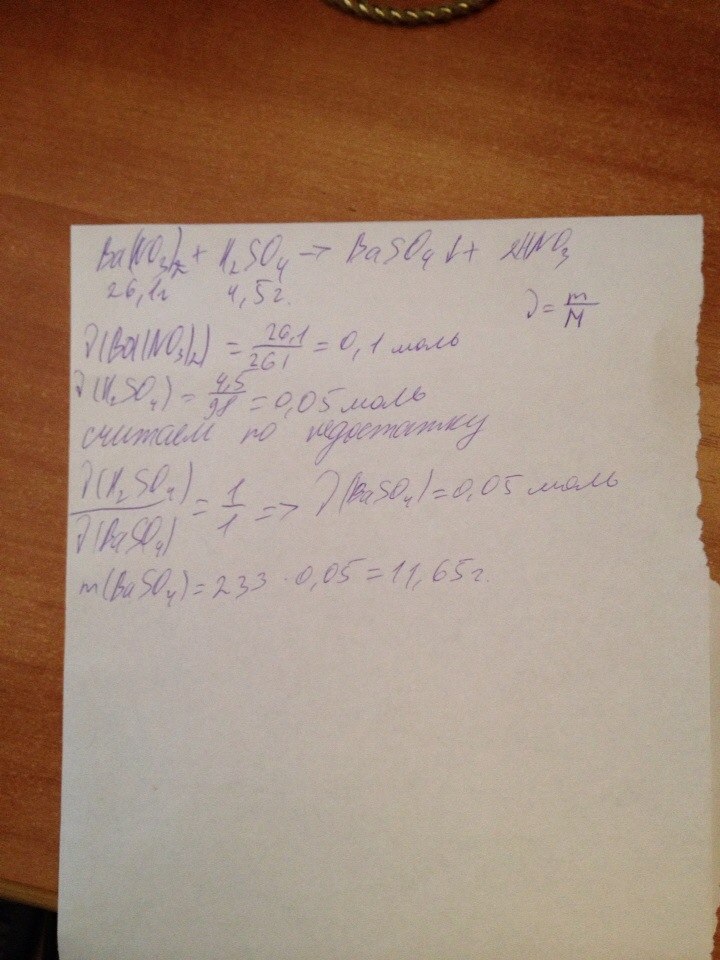 Ba(NO₃)₂ + H₂SO₄ → BaSO₄↓ + 2HNO₃
26,1г 4,5г.
ν = m/M
ν(Ba(NO₃)₂) = 26,1/261 = 0,1 моль
ν(H₂SO₄) = 4,5/98 = 0,05 моль
считаем по недостатку
ν(H₂SO₄)/ν(BaSO₄) = 1/1 => ν(BaSO₄) = 0,05 моль
m(BaSO₄) = 233 · 0,05 = 11,65г.